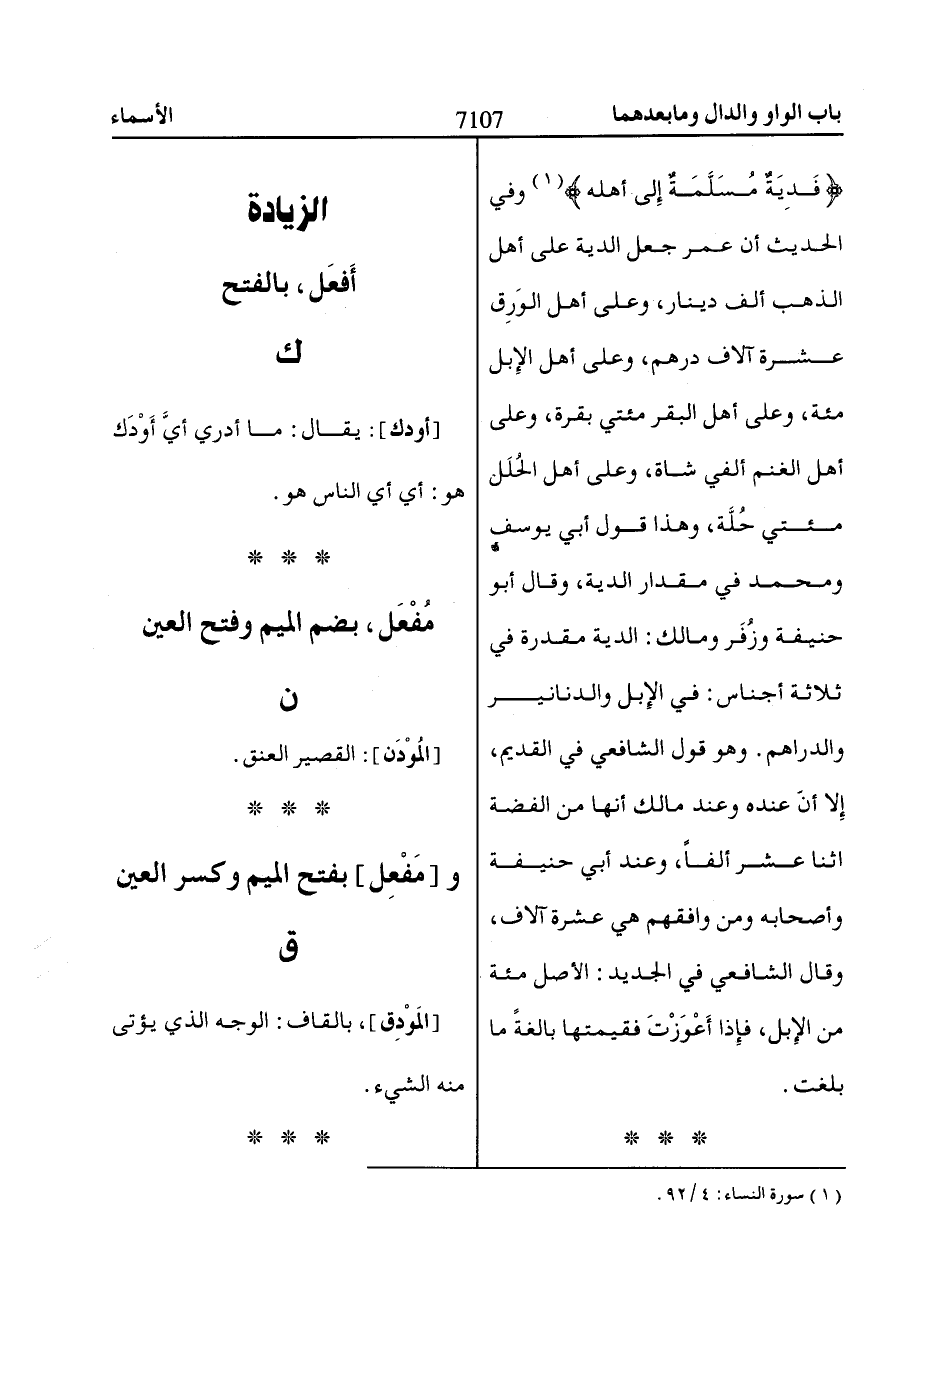 باب الواو والدال ومابعدهما
7107
الأسماء
﴿ فَدِيَةٌ مُسَلَّمَةٌ إلى أهله ﴾(١) وفي
الحديث أن عمر جعل الدية على أهل
الذهب ألف دينار، وعلى أهل الوَرِق
عشرة آلاف درهم، وعلى أهل الإبل
مئة، وعلى أهل البقر مئتي بقرة، وعلى
أهل الغنم ألفي شاة، وعلى أهل الحُلَل
مئتي حُلَّة، وهذا قول أبي يوسف
ومحمد في مقدار الدية، وقال أبو
حنيفة وزُفَر ومالك: الدية مقدرة في
ثلاثة أجناس: في الإبل والدنانير
والدراهم. وهو قول الشافعي في القديم،
إلا أنّ عنده وعند مالك أنها من الفضة
اثنا عشر ألفاً، وعند أبي حنيفة
وأصحابه ومن وافقهم هي عشرة آلاف،
وقال الشافعي في الجديد: الأصل مئة
من الإبل، فإذا أَعْوَزْتَ فقيمتها بالغةً ما
بلغت.
* * *
الزيادة
أَفعَل، بالفتح
ك
[أودك]: يقال: ما أدري أيَّ أَوْدَك
هو: أي أي الناس هو.
* * *
مُفْعَل، بضم الميم وفتح العين
ن
[المُوْدَن]: القصير العنق.
* * *
و [مَفْعِل] بفتح الميم وكسر العين
ق
[المَوْدِق]، بالقاف: الوجه الذي يؤتى
منه الشيء.
* * *
(١) سورة النساء: ٤/ ٩٢.